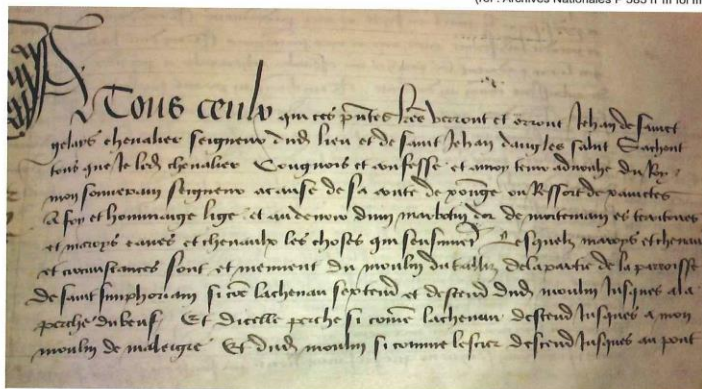 (réf : Archives Nationales P 585 n° III fol III
A Tous ceulx qui ces pntes lres verront et orront Jehan de sainct
gelays chevalier seigneur dud lieu et de saint Jehan dangles salut Sachent
tous que Je led chevalier Congnois et confesse et advoy tenir adveuhe du Roy
mon souverain seigneur a cause de sa conte de ou Ressort de xainctes
A foy et hommaige lige et au devoir dun marbotin dor de mortemain es territoires
et maroys eaues et chenaulx les choses qui sensuivent Lesquelz maroys et chenau
et circunstances sont et meuvent du moulin de la partie de la parroisse
de saint simphoriam si coe lachenau sextend et descend dud moulin Jusques a la
perche du beuf Et dicelle perche si come lachenau descend Jusques a mon
moulin de maleigre Et dud moulin si comme lestier descend Jusques au pont